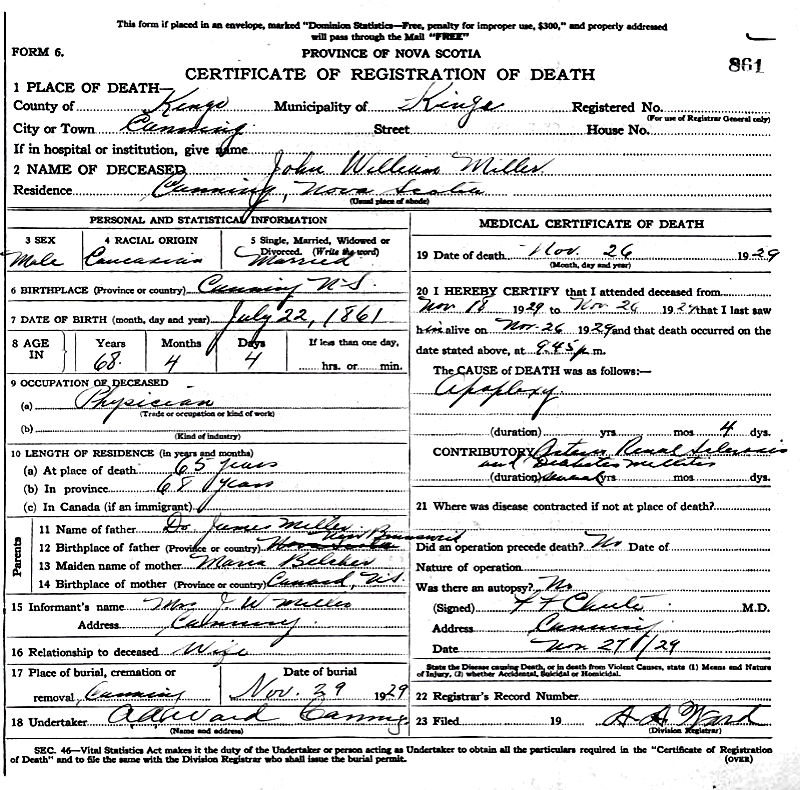 This form if placed in an envelope, marked "Dominion Statistics—Free, penalty for improper use, $300," and properly addressed
will pass through the Mail "FREE"
FORM 6.
PROVINCE OF NOVA SCOTIA
861
CERTIFICATE OF REGISTRATION OF DEATH
1 PLACE OF DEATH—
County of Kings Municipality of Kings Registered No.
(For use of Registrar General only)
City or Town Canning Street House No.
If in hospital or institution, give name
2 NAME OF DECEASED John William Miller
Residence Canning, Nova Scotia
(Usual place of abode)
PERSONAL AND STATISTICAL INFORMATION
3 SEX Male
4 RACIAL ORIGIN Caucasian
5 Single, Married, Widowed or
Divorced. (Write the word)
Married
6 BIRTHPLACE (Province or country) Canning N.S.
7 DATE OF BIRTH (month, day and year) July 22, 1861
8 AGE IN Years 68 Months 4 Days 4 If less than one day, hrs. or min.
9 OCCUPATION OF DECEASED
(a) Physician
(Trade or occupation or kind of work)
(b)
(Kind of industry)
10 LENGTH OF RESIDENCE (in years and months)
(a) At place of death 65 years
(b) In province 68 years
(c) In Canada (if an immigrant)
Parents
11 Name of father Dr. James Miller
12 Birthplace of father (Province or country) Nova Scotia New Brunswick
13 Maiden name of mother Maria Belcher
14 Birthplace of mother (Province or country) Canard, N.S.
15 Informant's name Mrs. J. W. Miller
Address Canning
16 Relationship to deceased Wife
17 Place of burial, cremation or
removal Canning
Date of burial
Nov. 29 1929
18 Undertaker A A Ward Canning
(Name and address)
MEDICAL CERTIFICATE OF DEATH
19 Date of death Nov. 26 1929
(Month, day and year)
20 I HEREBY CERTIFY that I attended deceased from
Nov 18 1929 to Nov 26 1929 that I last saw
him alive on Nov. 26 1929 and that death occurred on the
date stated above, at 9.45 p.m.
The CAUSE of DEATH was as follows:—
Apoplexy
(duration) yrs mos 4 dys.
CONTRIBUTORY Arterio Renal Sclerosis
and Diabetes Mellitus
(duration) several yrs mos dys.
21 Where was disease contracted if not at place of death?
Did an operation precede death? No Date of
Nature of operation
Was there an autopsy? No
(Signed) F F Chute M.D.
Address Canning
Date Nov 27/29
State the Disease causing Death, or in death from Violent Causes, state (1) Means and Nature
of Injury, (2) whether Accidental, Suicidal or Homicidal.
22 Registrar's Record Number
23 Filed 19 A A Ward
(Division Registrar)
SEC. 46—Vital Statistics Act makes it the duty of the Undertaker or person acting as Undertaker to obtain all the particulars required in the "Certificate of Registration
of Death" and to file the same with the Division Registrar who shall issue the burial permit.
(OVER)